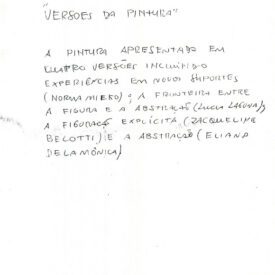 "VERSOES DA PINTURA"
A PINTURA APRESENTADA EM
QUATRO VERSÕES INCLUINDO
EXPERIÊNCIAS EM NOVOS SUPORTES
(NORMA MIERO); A FRONTEIRA ENTRE
A FIGURA E A ABSTRAÇÃO (LUCIA LAGUNA),
A FIGURAÇÃO EXPLÍCITA (JACQUELINE
BELOTTI) E A ABSTRAÇÃO (ELIANA
DELAMÔNICA)